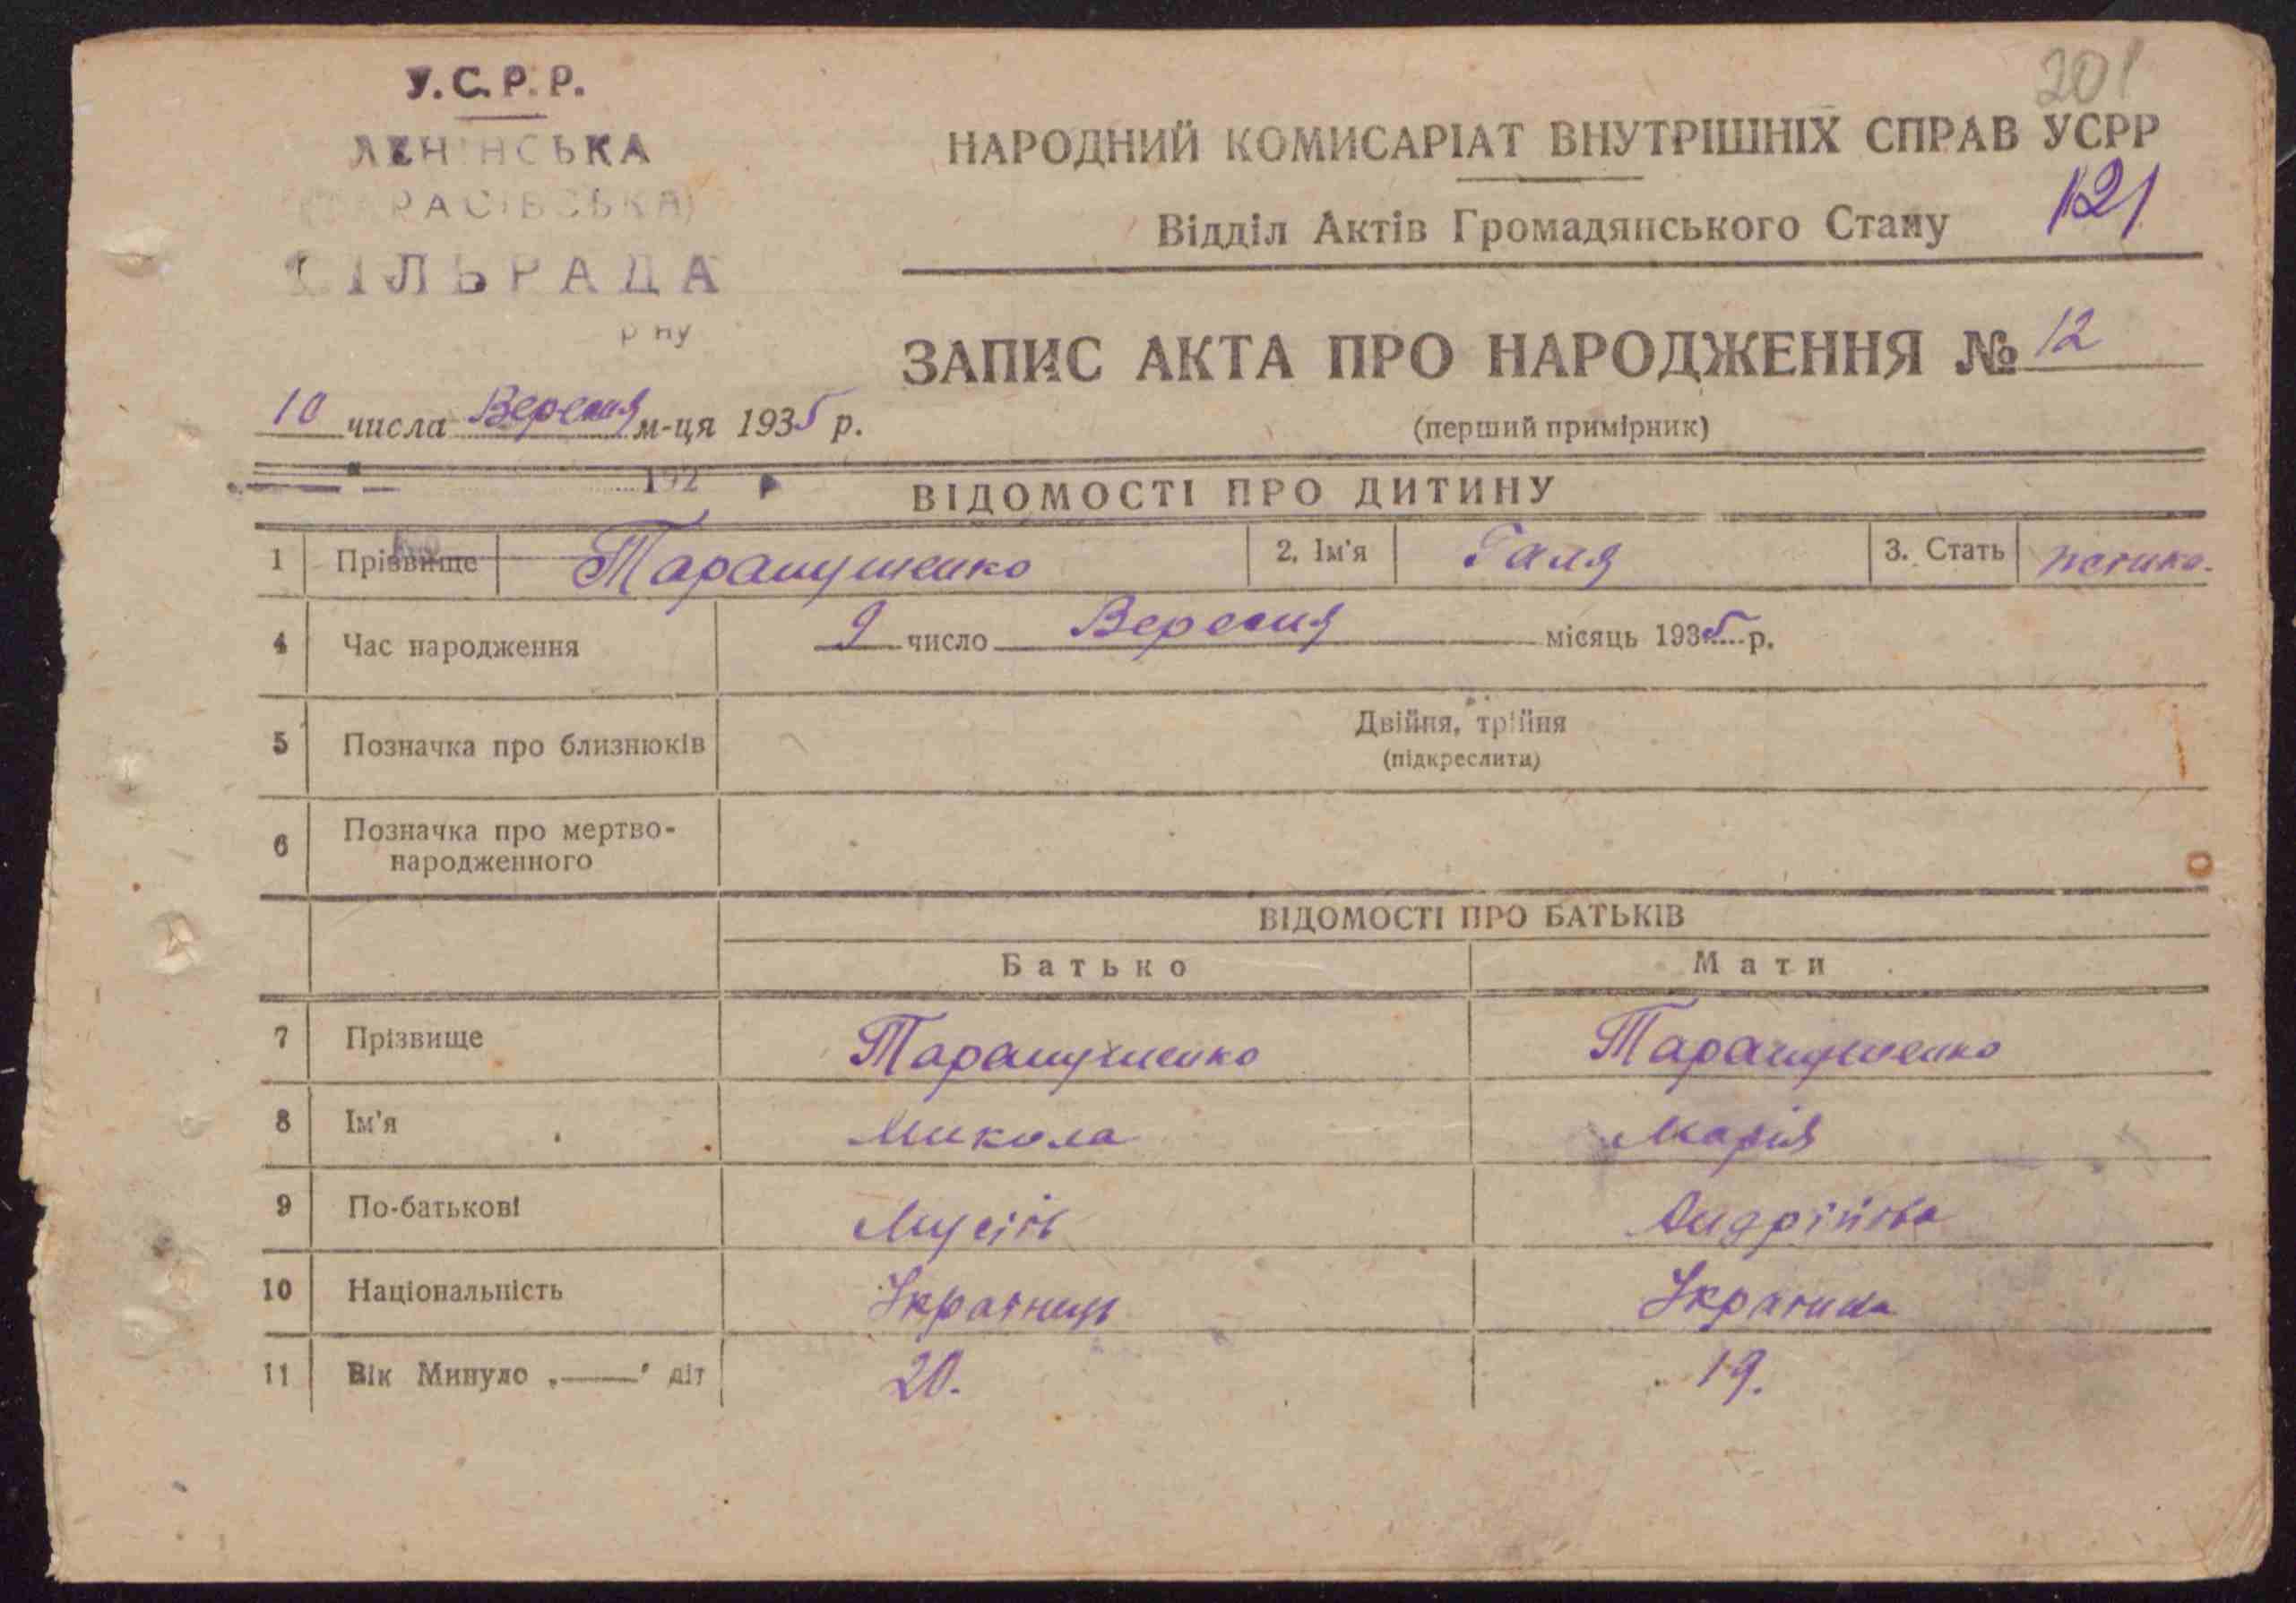 201
У.С.Р.Р.
ЛЕНІНСЬКА
СІЛЬРАДА
р ну
НАРОДНИЙ КОМИСАРІАТ ВНУТРІШНІХ СПРАВ УСРР
Відділ Актів Громадянського Стану 121
ЗАПИС АКТА ПРО НАРОДЖЕННЯ № 12
(перший примірник)
10 числа Вересня м-ця 1935 р.
192
ВІДОМОСТІ ПРО ДИТИНУ
1 Прізвище Тарапушенко 2. Ім'я Галя 3. Стать
4 Час народження 9 число Вересня місяць 1935 р.
5 Позначка про близнюків Двійня, трійня
(підкреслити)
6 Позначка про мертво-
народженного
ВІДОМОСТІ ПРО БАТЬКІВ
Батько Мати
7 Прізвище Тарапушенко Тарапушенко
8 Ім'я Микола Марія
9 По-батькові Мусіїв Андріївна
10 Національність Українець Українка
11 Вік Минуло „——" літ 20. 19.